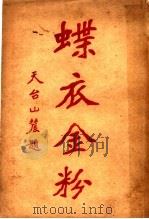 蝶衣金粉
天台山農題